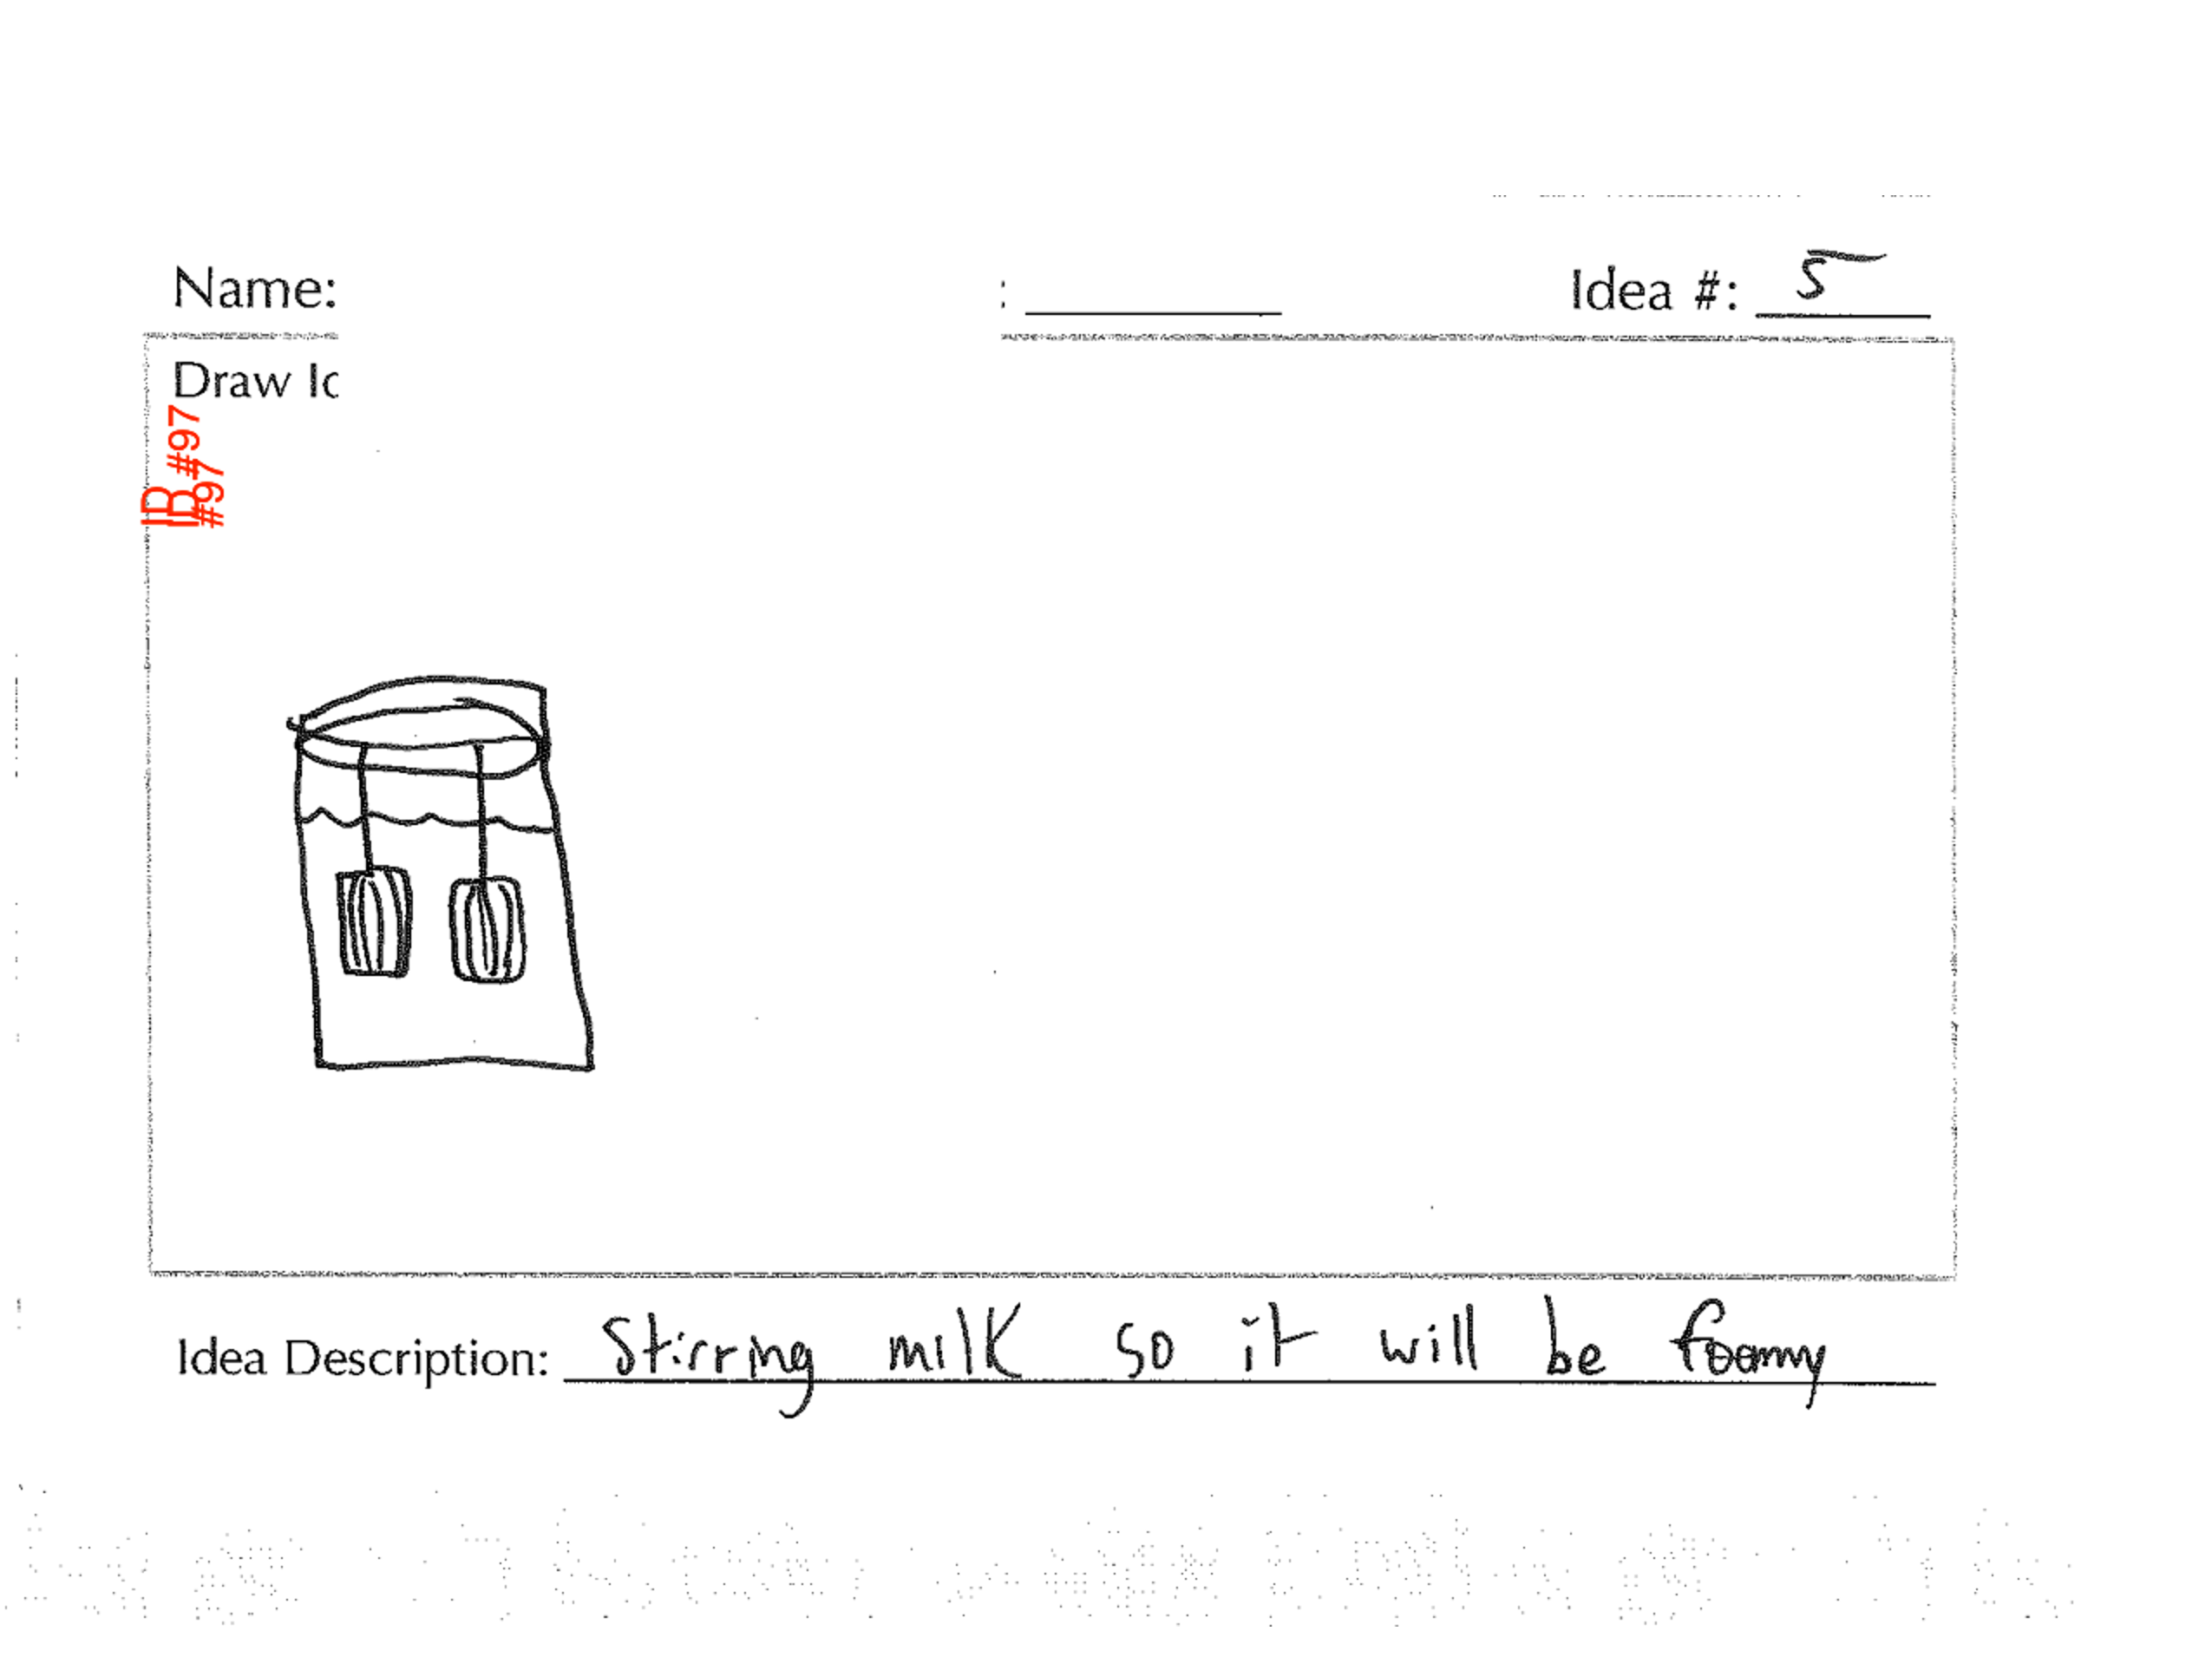 Name: : Idea #: 5
Draw Id
ID #97
ID #97
Idea Description: Stirring milk so it will be foamy